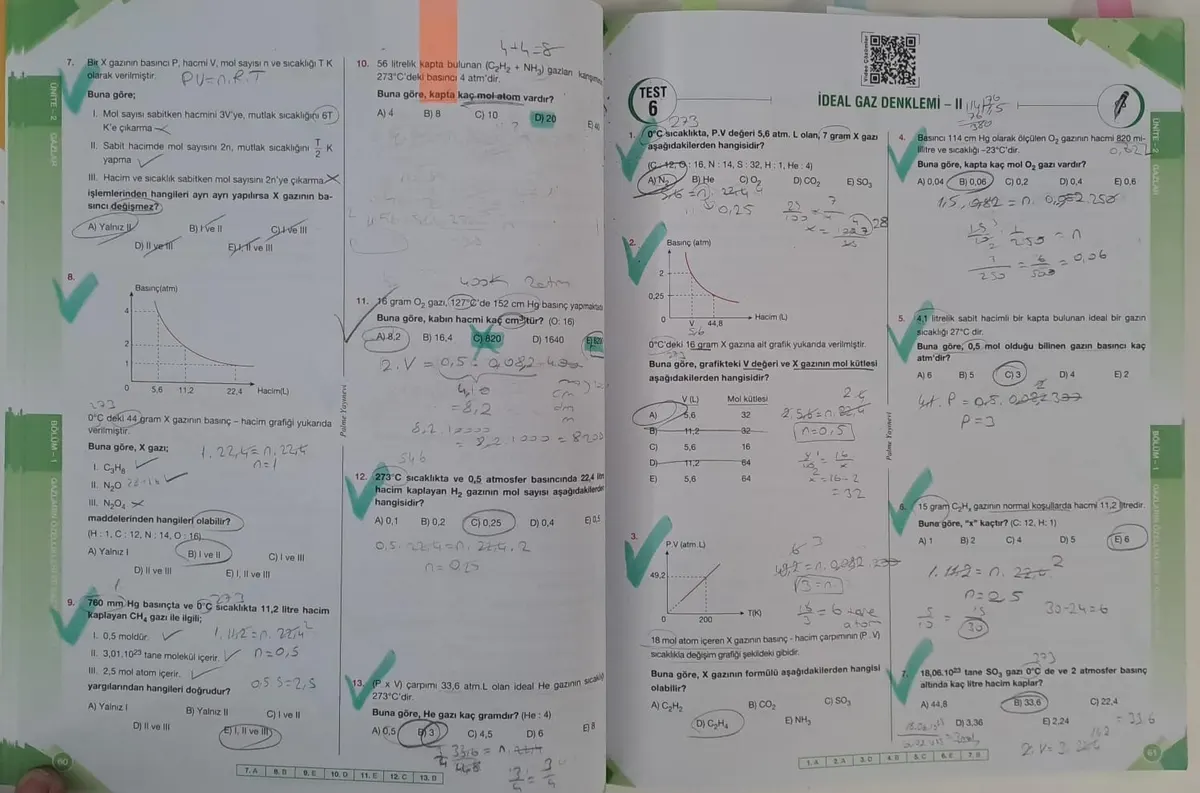 ÜNİTE - 2 GAZLAR
7. Bir X gazının basıncı P, hacmi V, mol sayısı n ve sıcaklığı T K
olarak verilmiştir. PV=n.R.T
Buna göre;
I. Mol sayısı sabitken hacmini 3V'ye, mutlak sıcaklığını 6T
K'e çıkarma
II. Sabit hacimde mol sayısını 2n, mutlak sıcaklığını T/2 K
yapma
III. Hacim ve sıcaklık sabitken mol sayısını 2n'ye çıkarma
işlemlerinden hangileri ayrı ayrı yapılırsa X gazının ba-
sıncı değişmez?
A) Yalnız II B) I ve II C) I ve III
D) II ve III E) I, II ve III
8.
Basınç(atm)
4
2
1
0 5,6 11,2 22,4 Hacim(L)
273
0°C deki 44 gram X gazının basınç – hacim grafiği yukarıda
verilmiştir.
Buna göre, X gazı; 1.22,4=n.22,4
n=1
I. C3H8
II. N2O
III. N2O4
maddelerinden hangileri olabilir?
(H : 1, C : 12, N : 14, O : 16)
A) Yalnız I B) I ve II C) I ve III
D) II ve III E) I, II ve III
BÖLÜM - 1
1 273
9. 760 mm Hg basınçta ve 0°C sıcaklıkta 11,2 litre hacim
kaplayan CH4 gazı ile ilgili;
I. 0,5 moldür. 1.11,2=n.22,4 2
II. 3,01.10²³ tane molekül içerir. n=0,5
III. 2,5 mol atom içerir. 0,5.5=2,5
yargılarından hangileri doğrudur?
A) Yalnız I B) Yalnız II C) I ve II
D) II ve III E) I, II ve III
60
7. A 8. B 9. E 10. D 11. E 12. C 13. B
4+4=8
10. 56 litrelik kapta bulunan (C2H2 + NH3) gazları
273°C'deki basıncı 4 atm'dir.
Buna göre, kapta kaç mol atom vardır?
A) 4 B) 8 C) 10 D) 20 E) 40
400K 2atm
11. 16 gram O2 gazı, 127°C'de 152 cm Hg basınç yapmaktadır.
Buna göre, kabın hacmi kaç cm³tür? (O: 16)
A) 8,2 B) 16,4 C) 820 D) 1640
2.V = 0,5.0,082.400
= 8,2
8,2.1000 = 8200
Palme Yayınevi
546
12. 273°C sıcaklıkta ve 0,5 atmosfer basıncında 22,4 litre
hacim kaplayan H2 gazının mol sayısı aşağıdakilerden
hangisidir?
A) 0,1 B) 0,2 C) 0,25 D) 0,4 E) 0,5
0,5.22,4=n.22,4.2
n=0,25
13. (P x V) çarpımı 33,6 atm.L olan ideal He gazının sıcaklığı
273°C'dir.
Buna göre, He gazı kaç gramdır? (He : 4)
A) 0,5 B) 3 C) 4,5 D) 6 E) 8
Video Çözümler
TEST
6
İDEAL GAZ DENKLEMİ – II
273
1. 0°C sıcaklıkta, P.V değeri 5,6 atm. L olan, 7 gram X gazı
aşağıdakilerden hangisidir?
(C : 12, O : 16, N : 14, S : 32, H : 1, He : 4)
A) N2 B) He C) O2 D) CO2 E) SO3
5,6=n.22,4
0,25
28
2.
Basınç (atm)
2
0,25
0 V 44,8 Hacim (L)
5,6
0°C'deki 16 gram X gazına ait grafik yukarıda verilmiştir.
273
Buna göre, grafikteki V değeri ve X gazının mol kütlesi
aşağıdakilerden hangisidir?
V (L) Mol kütlesi
A) 5,6 32
B) 11,2 32
C) 5,6 16
D) 11,2 64
E) 5,6 64
2.5,6=n.22,4
n=0,5
=16.2
=32
3.
P.V (atm.L)
49,2
0 200 T(K)
49,2=n.0,082.200
3=n
18/3=6 tane
atom
18 mol atom içeren X gazının basınç - hacim çarpımının (P . V)
sıcaklıkla değişim grafiği şekildeki gibidir.
Buna göre, X gazının formülü aşağıdakilerden hangisi
olabilir?
A) C2H2 B) CO2 C) SO3
D) C2H4 E) NH3
Palme Yayınevi
1. A 2. A 3. D 4. B 5. C 6. E 7. B
4. Basıncı 114 cm Hg olarak ölçülen O2 gazının hacmi 820 mi-
lilitre ve sıcaklığı –23°C'dir.
Buna göre, kapta kaç mol O2 gazı vardır?
A) 0,04 B) 0,06 C) 0,2 D) 0,4 E) 0,6
1,5.0,82=n.0,082.250
= 0,06
5. 4,1 litrelik sabit hacimli bir kapta bulunan ideal bir gazın
sıcaklığı 27°C dir.
Buna göre, 0,5 mol olduğu bilinen gazın basıncı kaç
atm'dir?
A) 6 B) 5 C) 3 D) 4 E) 2
4,1.P=0,5.0,082.300
P=3
6. 15 gram C2Hx gazının normal koşullarda hacmi 11,2 litredir.
Buna göre, "x" kaçtır? (C: 12, H: 1)
A) 1 B) 2 C) 4 D) 5 E) 6
1.11,2=n.22,4 2
30
30-24=6
273
7. 18,06.10²³ tane SO3 gazı 0°C de ve 2 atmosfer basınç
altında kaç litre hacim kaplar?
A) 44,8 B) 33,6 C) 22,4
D) 3,36 E) 2,24
= 33,6
2.V=3.22,4
ÜNİTE - 2 GAZLAR
BÖLÜM - 1
61